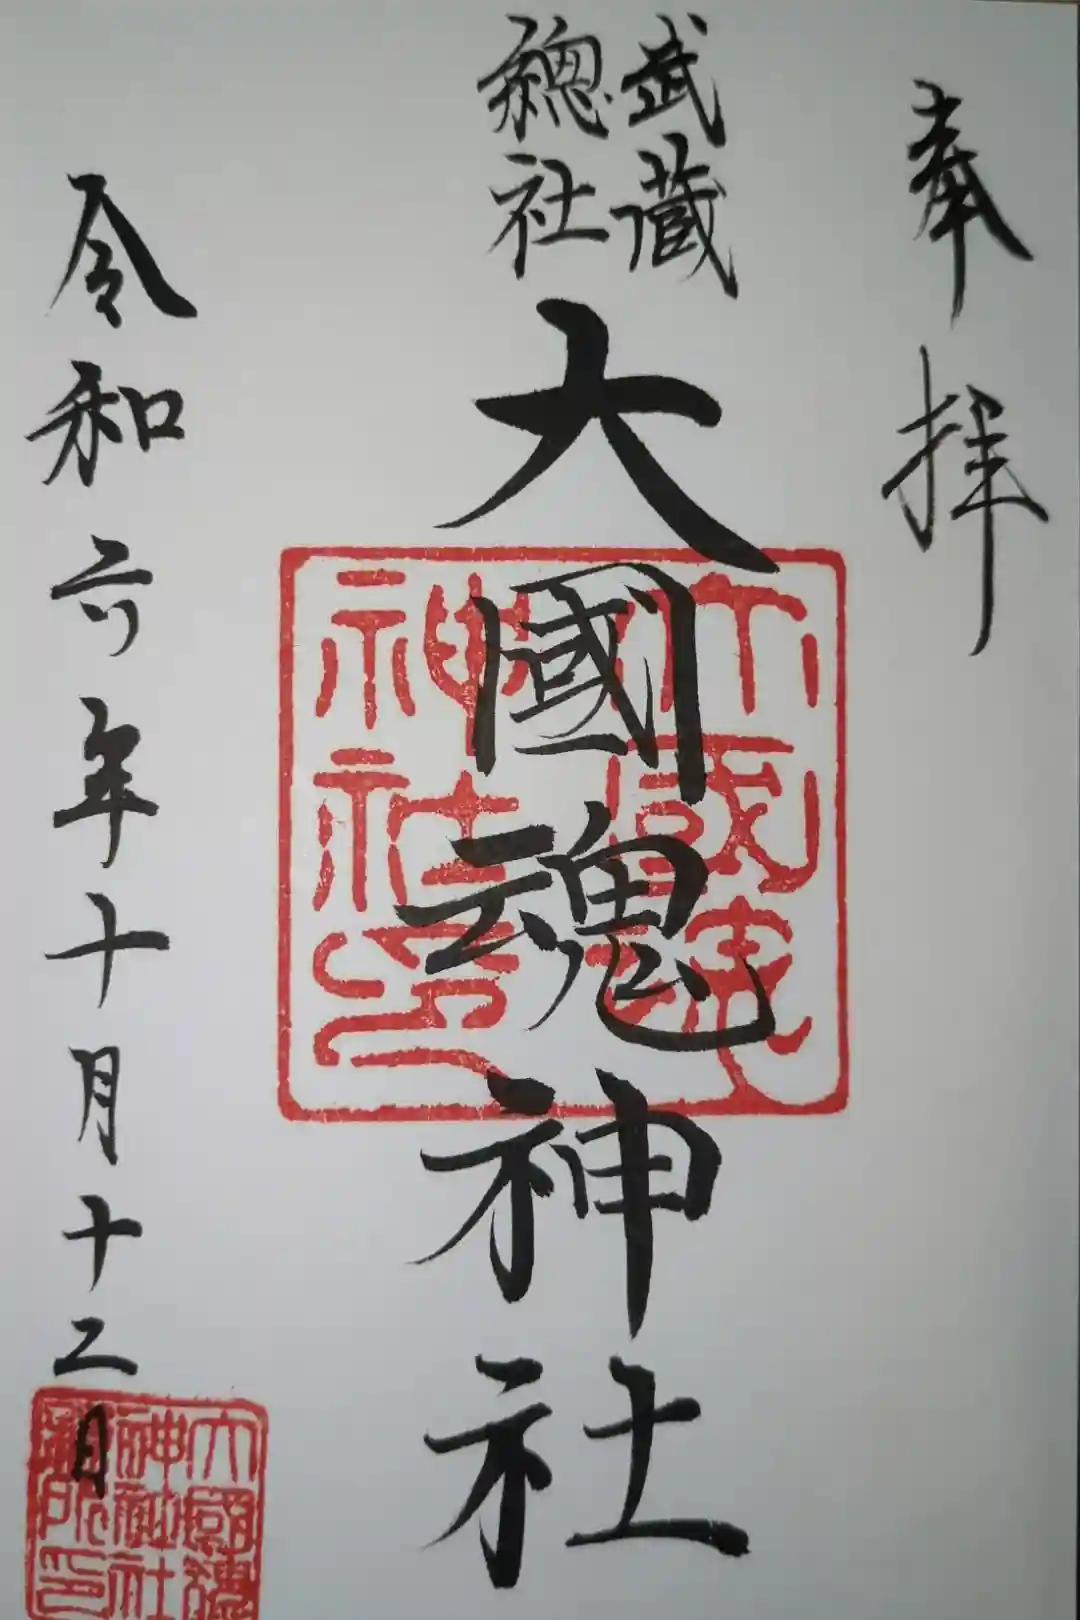 奉拝
武蔵
總社
大國魂神社
大國魂
神社印
令和六年十月十二日
大國魂
神社社
務所印